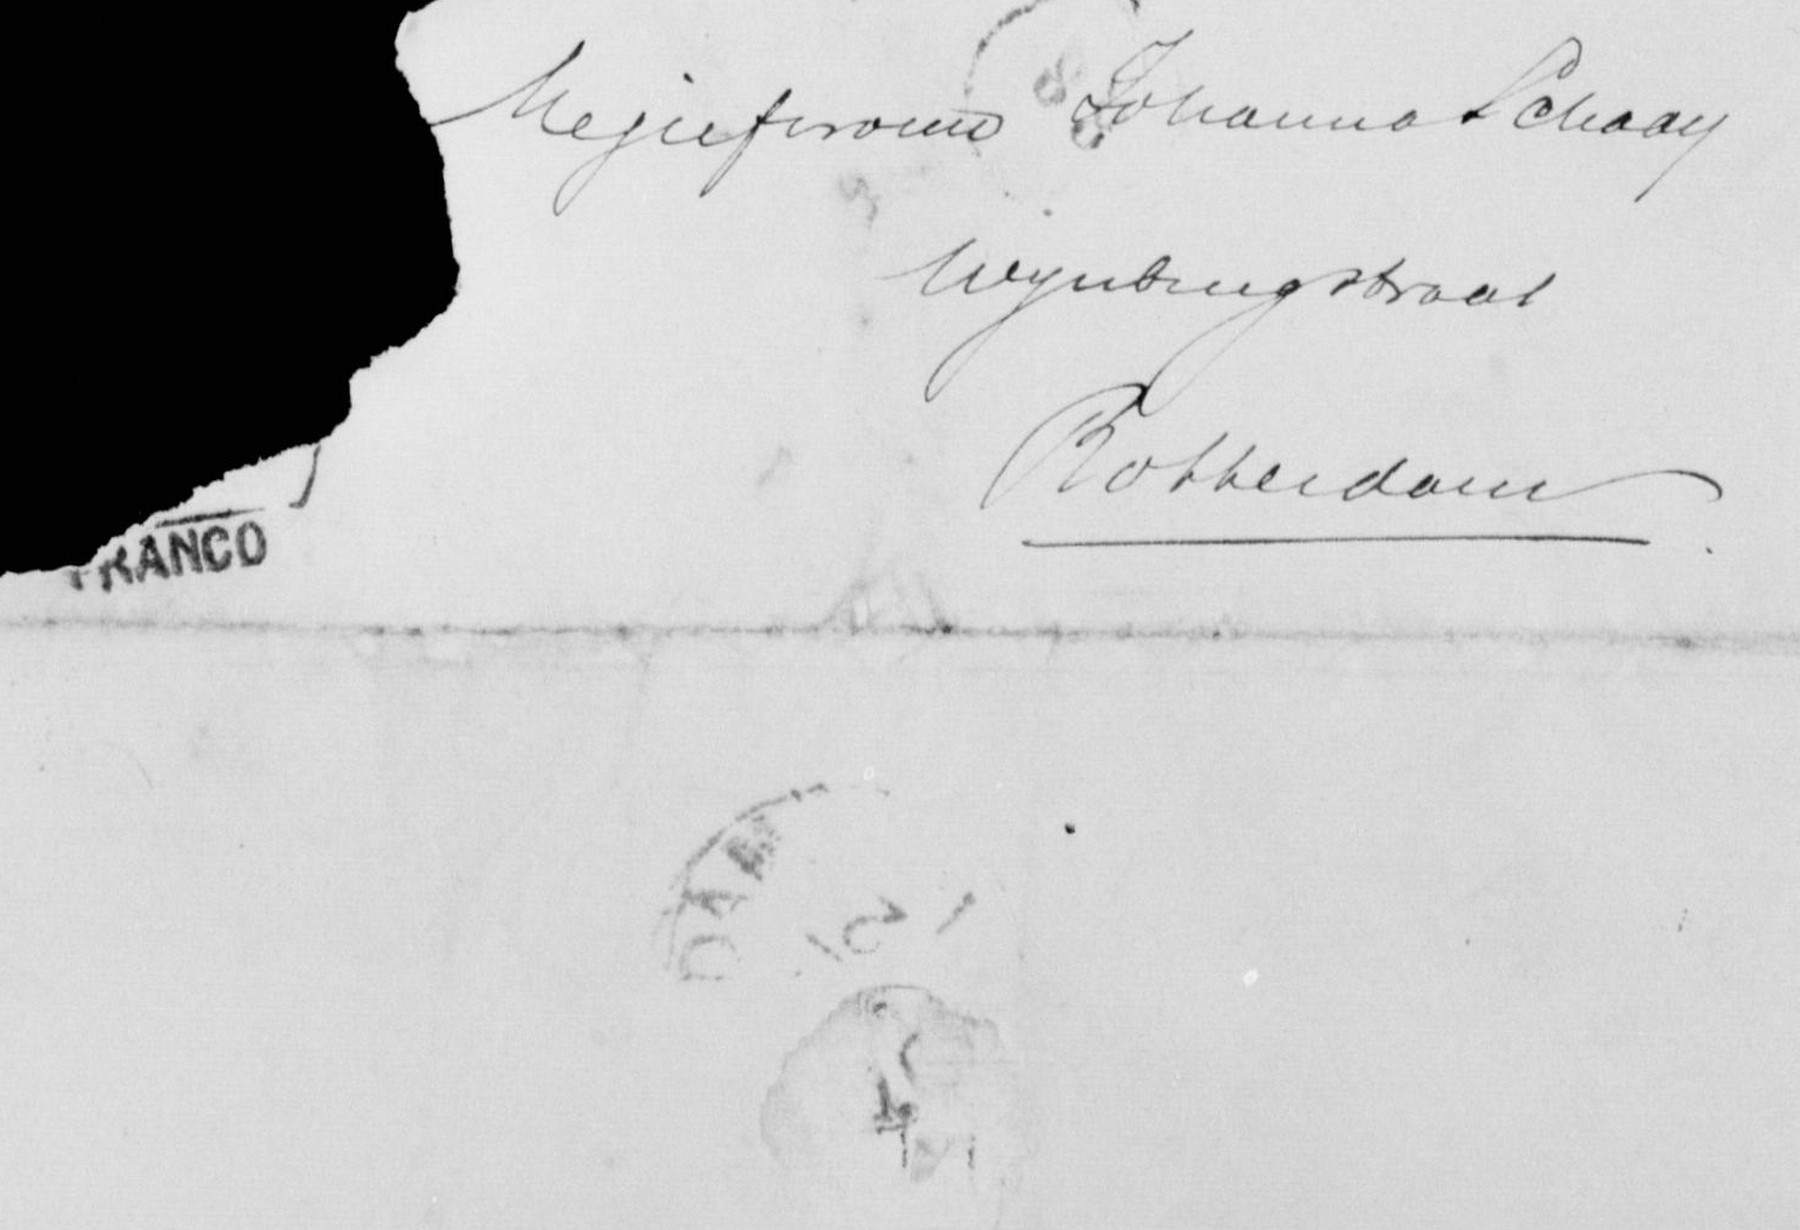 Mejufvrouw Johanna Schaay
Wynbrugstraat
Rotterdam
FRANCO
DAM